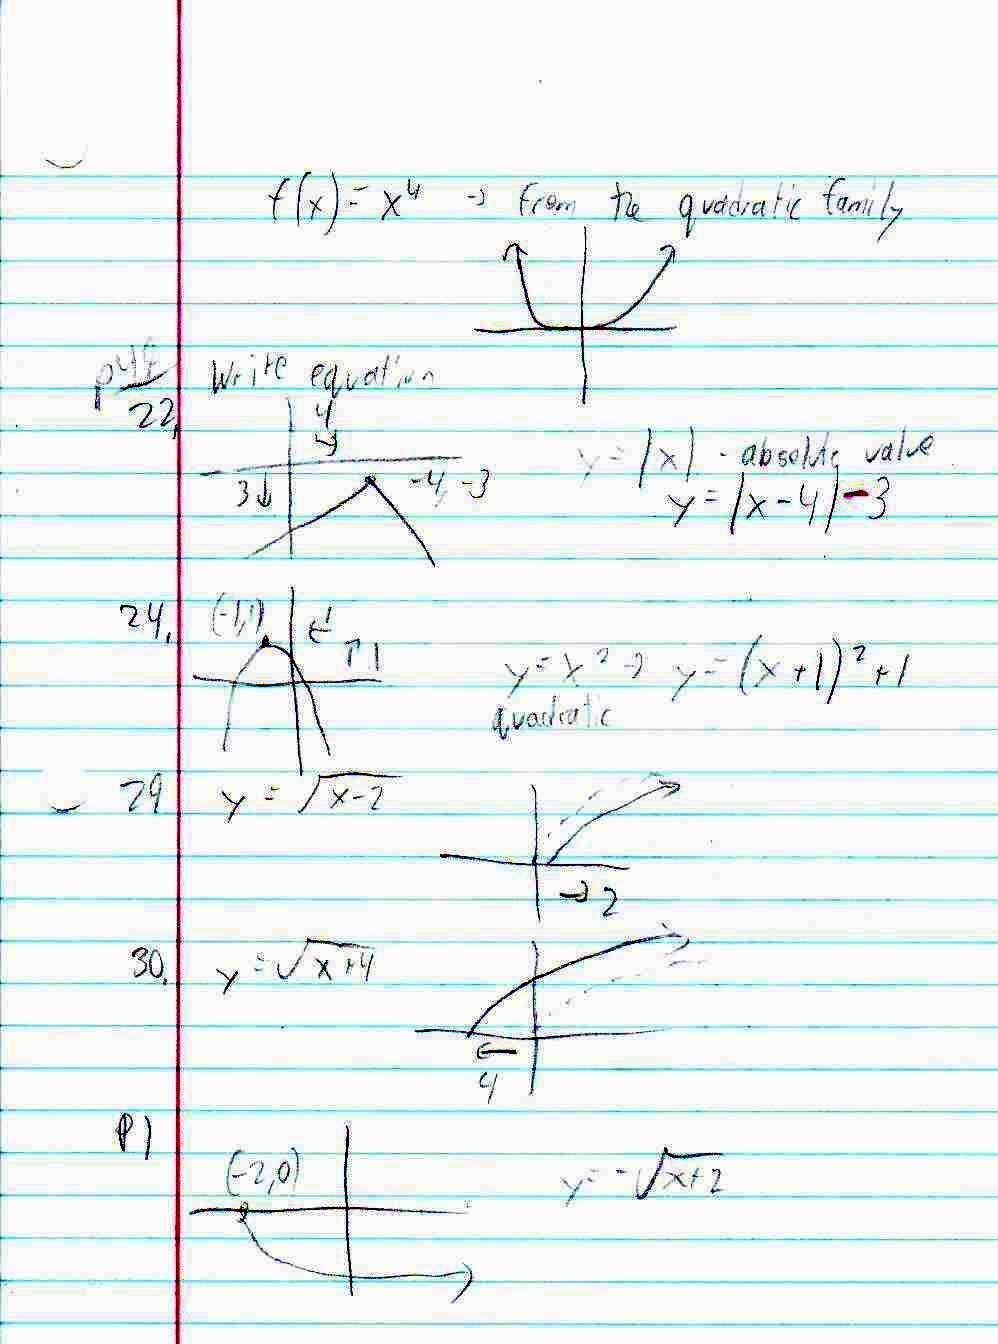 f(x) = x⁴ → from the quadratic family
Write equation
22.
4
→
3↓
-4, -3
y = |x| - absolute value
y = |x-4| - 3
24.
(-1,1)
←1
↑1
y = x² → y = (x+1)² + 1
quadratic
29
y = √x-2
→ 2
30.
y = √x+4
←
4
P1
(-2,0)
y = -√x+2